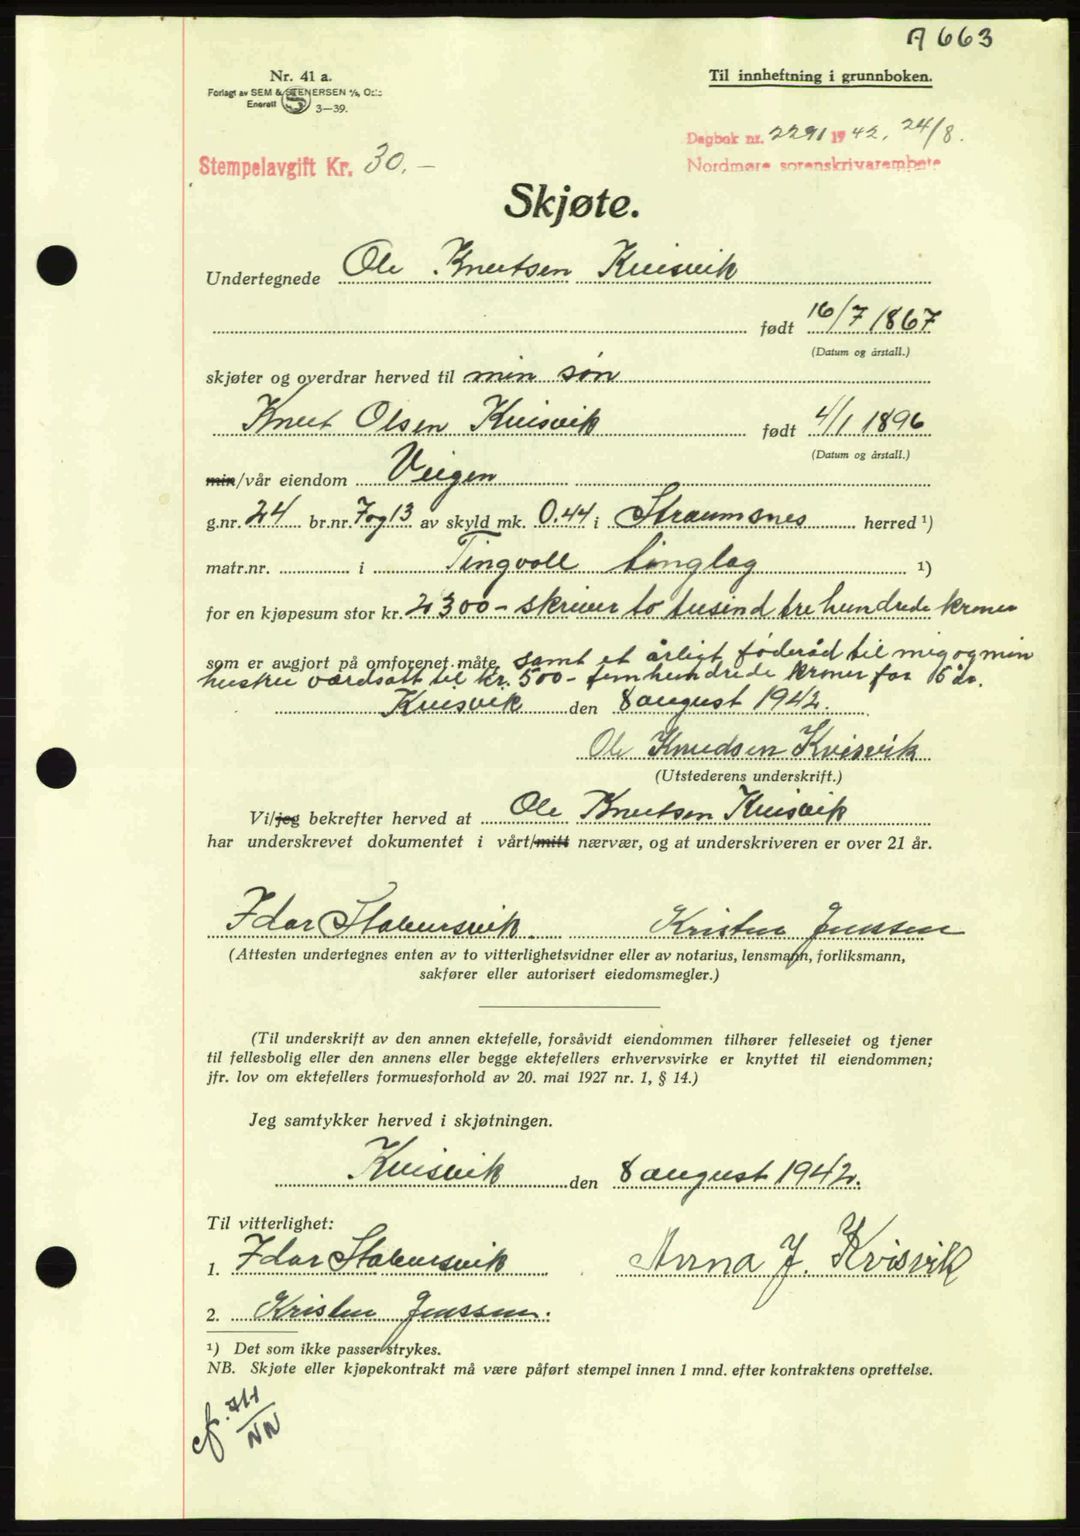 A 663
Nr. 41 a.
Forlagt av SEM & STENERSEN A/S, Oslo
Enerett S 3—39.
Til innheftning i grunnboken.
Dagbok nr. 2291 1942. 24/8.
Nordmøre sorenskrivarembete
Stempelavgift Kr. 30.-
Skjøte.
Undertegnede Ole Knutsen Kvisvik
født 16/7 1867
(Datum og årstall.)
skjøter og overdrar herved til min søn
Knut Olsen Kvisvik født 4/1 1896
(Datum og årstall.)
min/vår eiendom Veigen
g.nr. 24 br.nr. 7 og 13 av skyld mk. 0.44 i Straumsnes herred ¹)
matr.nr. i Tingvoll tinglag ¹)
for en kjøpesum stor kr. 2300- skriver to tusind tre hundrede kroner
som er avgjort på omforenet måte samt et årligt føderåd til mig og min
hustru værdsatt til kr. 500- femhundrede kroner for 15 år.
Kvisvik den 8 august 1942.
Ole Knudsen Kvisvik
(Utstederens underskrift.)
Vi/jeg bekrefter herved at Ole Knutsen Kvisvik
har underskrevet dokumentet i vårt/mitt nærvær, og at underskriveren er over 21 år.
Idar Stabursvik. Kristen Jenssen
(Attesten undertegnes enten av to vitterlighetsvidner eller av notarius, lensmann, forliksmann,
sakfører eller autorisert eiedomsmegler.)
(Til underskrift av den annen ektefelle, forsåvidt eiendommen tilhører felleseiet og tjener
til fellesbolig eller den annens eller begge ektefellers erhvervsvirke er knyttet til eiendommen;
jfr. lov om ektefellers formuesforhold av 20. mai 1927 nr. 1, § 14.)
Jeg samtykker herved i skjøtningen.
Kvisvik den 8 august 1942.
Til vitterlighet:
1. Idar Stabursvik Anna J. Kvisvik
2. Kristen Jenssen.
¹) Det som ikke passer strykes.
NB. Skjøte eller kjøpekontrakt må være påført stempel innen 1 mnd. efter kontraktens oprettelse.
NN